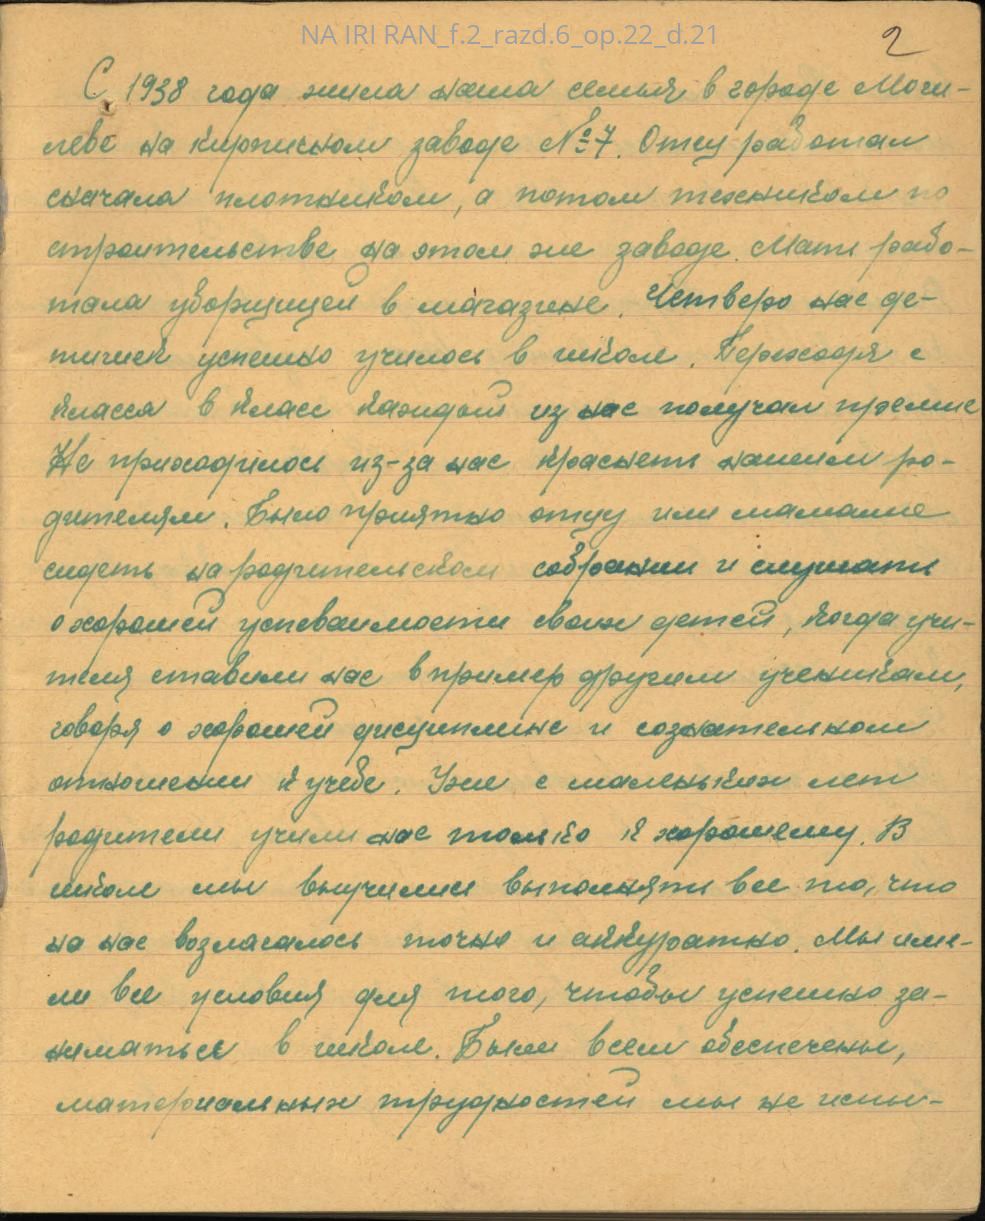 NA IRI RAN_f.2_razd.6_op.22_d.21
2
С 1938 года жила наша семья в городе Моги-
леве на кирпичном заводе №7. Отец работал
сначала плотником, а потом техником по
строительстве на этом же заводе. Мать рабо-
тала уборщицей в магазине. Четверо нас де-
тишек успешно училось в школе. Переходя с
класса в класс каждый из нас получал премие
Не приходилось из-за нас краснеть нашим ро-
дителям. Было приятно отцу или мамаше
сидеть на родительском собрании и слушать
о хорошей успеваимости своих детей, когда учи-
теля ставили нас в пример другим ученикам,
говоря о хорошей дисциплине и сознательном
отношении к учебе. Уже с маленьких лет
родители учили нас только к хорошему. В
школе мы выучились выполнять все то, что
на нас возлагалось точно и аккуратно. Мы име-
ли все условия для того, чтобы успешно за-
ниматься в школе. Были всем обеспечены,
материальных трудностей мы не испы-